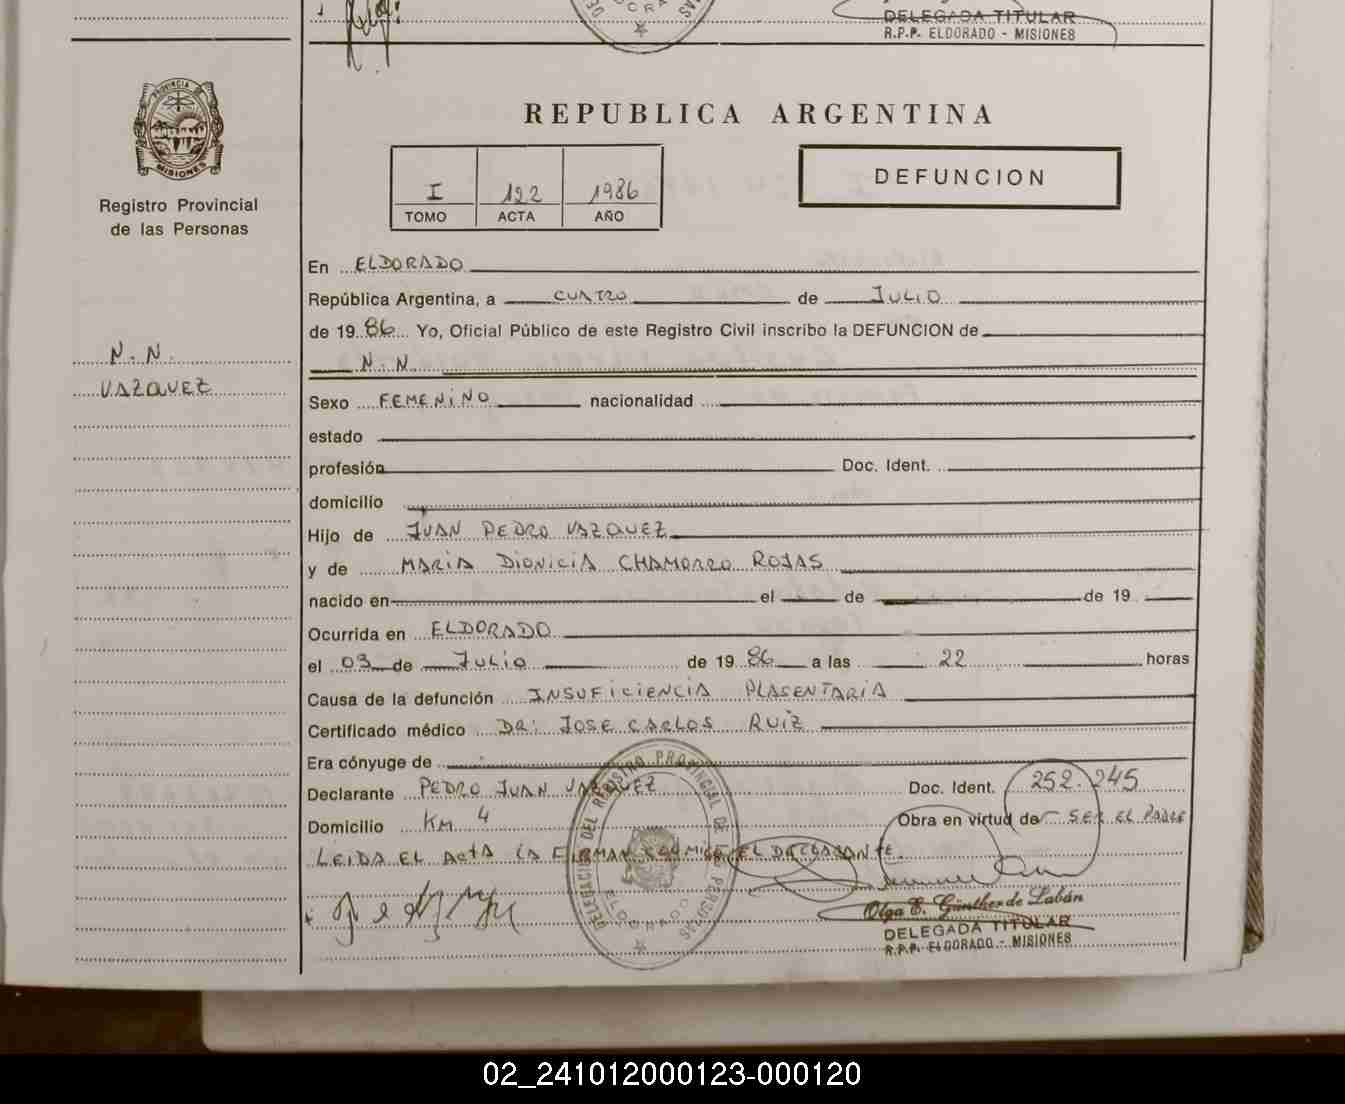 DELEGADA TITULAR
R.P.P. ELDORADO - MISIONES
PROVINCIA DE
MISIONES
Registro Provincial
de las Personas
REPUBLICA ARGENTINA
I 122 1986
TOMO ACTA AÑO
DEFUNCION
En ELDORADO
República Argentina, a CUATRO de JULIO
de 1986 Yo, Oficial Público de este Registro Civil inscribo la DEFUNCION de
N.N.
VAZQUEZ
N.N.
Sexo FEMENINO nacionalidad
estado
profesión Doc. Ident.
domicilio
Hijo de JUAN PEDRO VAZQUEZ
y de MARIA DIONICIA CHAMORRO ROJAS
nacido en el de de 19
Ocurrida en ELDORADO
el 03 de JULIO de 1986 a las 22 horas
Causa de la defunción INSUFICIENCIA PLASENTARIA
Certificado médico DR: JOSE CARLOS RUIZ
Era cónyuge de
Declarante PEDRO JUAN VAZQUEZ Doc. Ident. 252.245
Domicilio KM 4 Obra en virtud de SER EL PADRE
LEIDA EL ACTA LA FIRMAN CONMIGO EL DECLARANTE.
DELEGACION DEL REGISTRO PROVINCIAL DE PERSONAS
ELDORADO
Olga E. Günther de Labán
DELEGADA TITULAR
R.P.P. ELDORADO - MISIONES
02_241012000123-000120